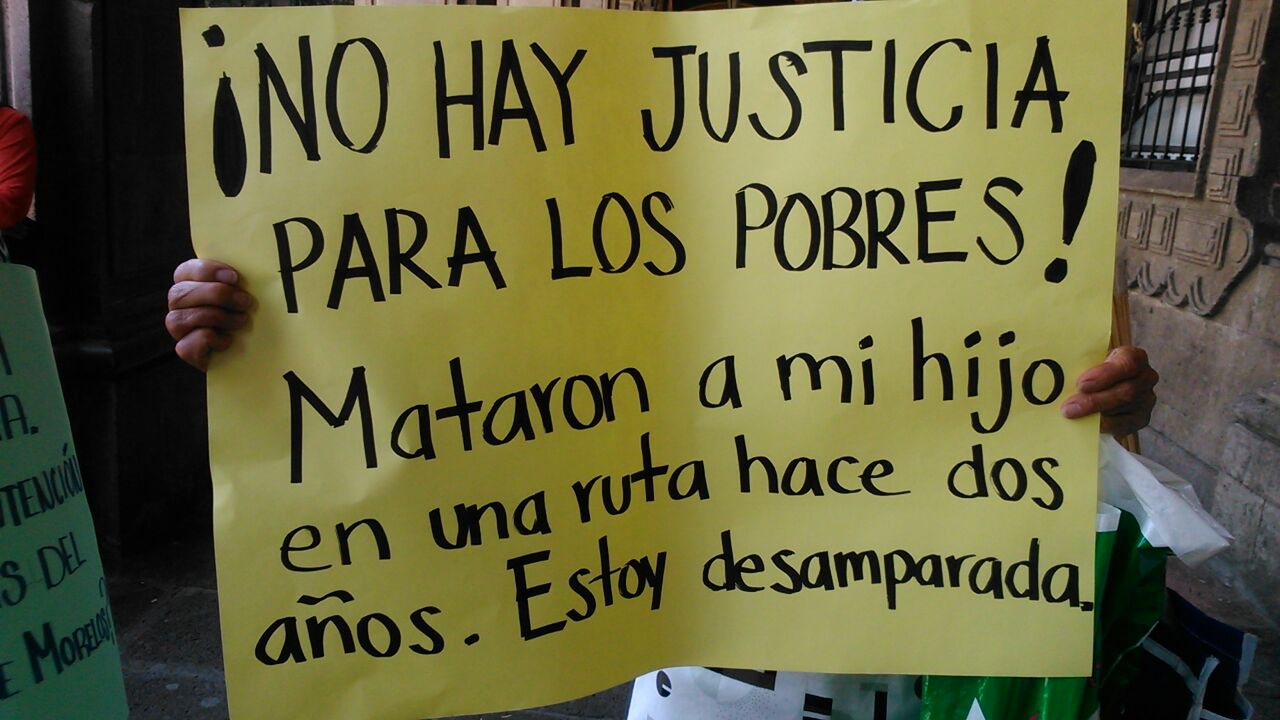 ¡NO HAY JUSTICIA
PARA LOS POBRES!
Mataron a mi hijo
en una ruta hace dos
años. Estoy desamparada.
A.
DEL
MORELOS!